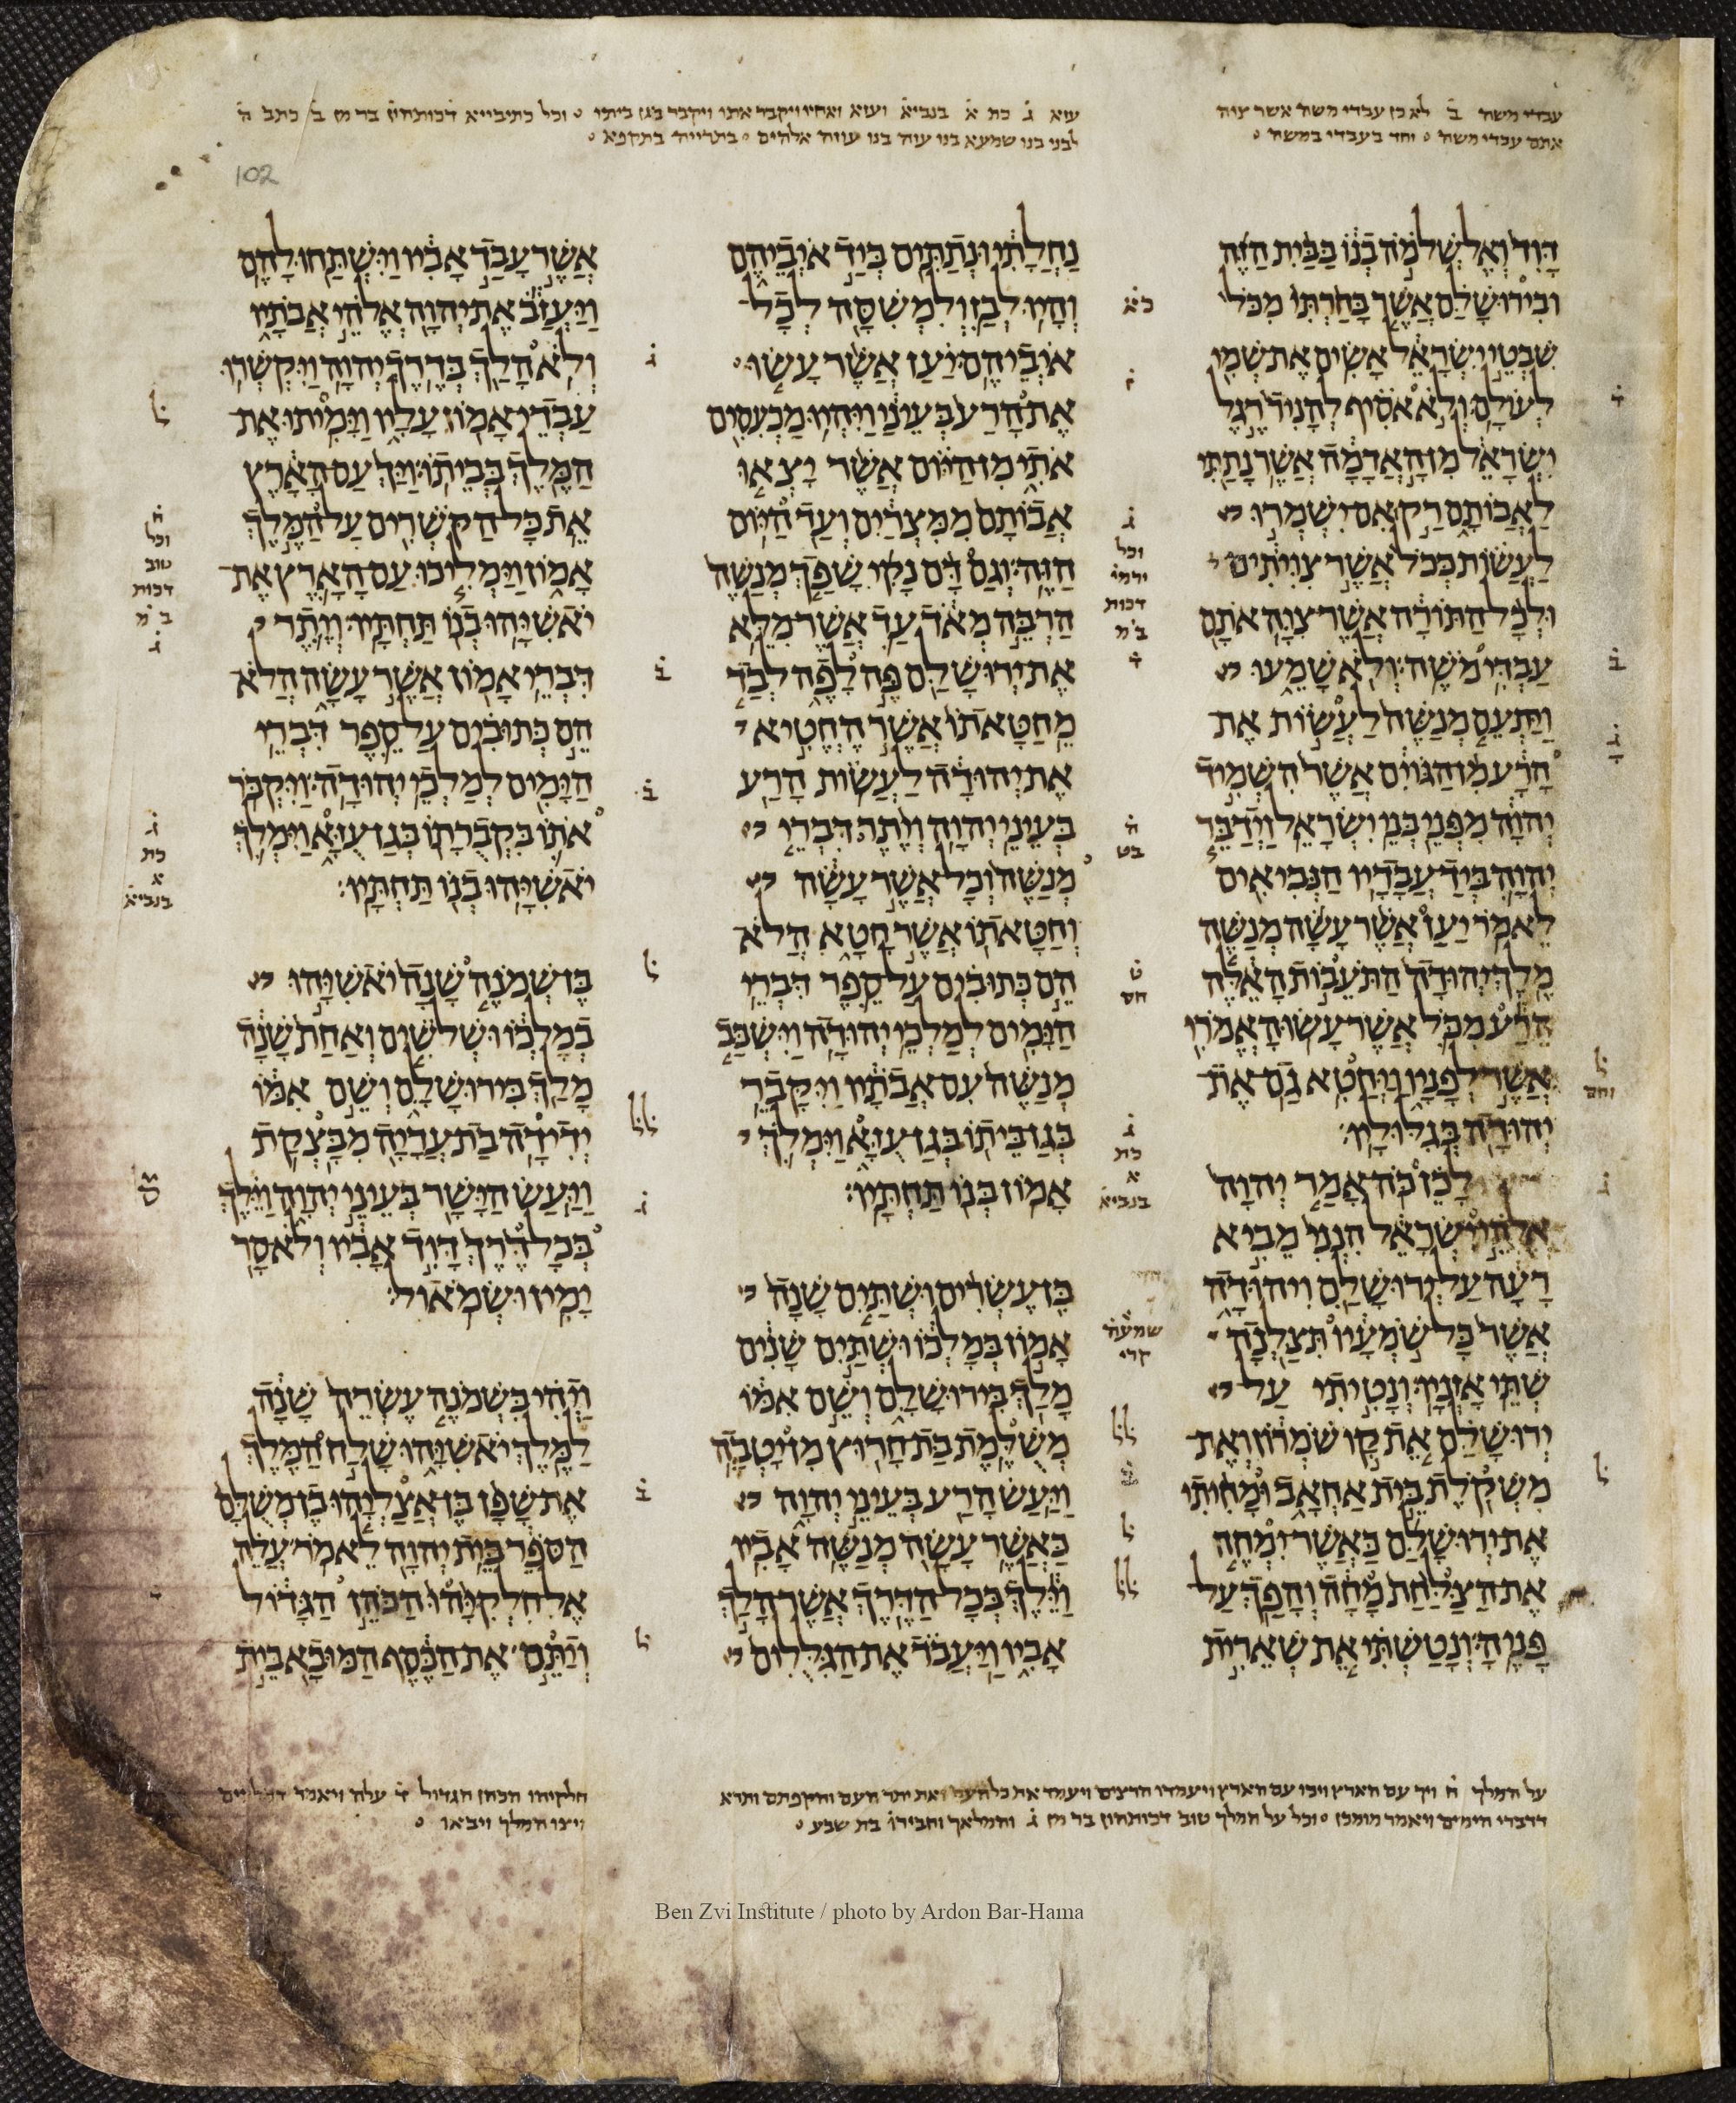 עבדי משה ב לא כן עבדי משה אשר צוה
אתם עבדי משה וחד בעבדי במשה
עזא ג כת א בנביא ועזא ואחיו ויקבר אתו ויקבר בגן ביתו וכל כתיבייא דכותהון בר מן ב כתב ה
לבני בנו שמעא בנו עזה בנו עוזה אלהים בתרייה בתקפא
102
דוד ואל שלמה בנו בבית הזה
ובירושלם אשר בחרתי מכל
שבטי ישראל אשים את שמי
לעולם ולא אסיף להניד רגל
ישראל מן האדמה אשר נתתי
לאבותם רק אם ישמרו
לעשות ככל אשר צויתים
ולכל התורה אשר צוה אתם
עבדי משה ולא שמעו
ויתעם מנשה לעשות את
הרע מן הגוים אשר השמיד
יהוה מפני בני ישראל וידבר
יהוה ביד עבדיו הנביאים
לאמר יען אשר עשה מנשה
מלך יהודה התעבות האלה
הרע מכל אשר עשו האמרי
אשר לפניו ויחטא גם את
יהודה בגלוליו
לכן כה אמר יהוה
אלהי ישראל הנני מביא
רעה על ירושלם ויהודה
אשר כל שמעיו תצלנה
שתי אזניו ונטיתי על
ירושלם את קו שמרון ואת
משקלת בית אחאב ומחיתי
את ירושלם כאשר ימחה
את הצלחת מחה והפך על
פניה ונטשתי את שארית
כא
ג
וכל
ירמי
דכות
ב מ
ד
ה
בט
ט
חס
ג
כת
א
בנביא
שמעה
קרי
נחלתי ונתתים ביד איביהם
והיו לבז ולמשסה לכל
איביהם יען אשר עשו
את הרע בעיני ויהיו מכעסים
אתי מן היום אשר יצאו
אבותם ממצרים ועד היום
הזה וגם דם נקי שפך מנשה
הרבה מאד עד אשר מלא
את ירושלם פה לפה לבד
מחטאתו אשר החטיא
את יהודה לעשות הרע
בעיני יהוה ויתר דברי
מנשה וכל אשר עשה
וחטאתו אשר חטא הלא
הם כתובים על ספר דברי
הימים למלכי יהודה וישכב
מנשה עם אבתיו ויקבר
בגן ביתו בגן עזא וימלך
אמון בנו תחתיו
בן עשרים ושתים שנה
אמון במלכו ושתים שנים
מלך בירושלם ושם אמו
משלמת בת חרוץ מן יטבה
ויעש הרע בעיני יהוה
כאשר עשה מנשה אביו
וילך בכל הדרך אשר הלך
אביו ויעבד את הגללים
אשר עבד אביו וישתחו להם
ויעזב את יהוה אלהי אבתיו
ולא הלך בדרך יהוה ויקשרו
עבדי אמון עליו וימיתו את
המלך בביתו ויך עם הארץ
את כל הקשרים על המלך
אמון וימליכו עם הארץ את
יאשיהו בנו תחתיו ויתר
דברי אמון אשר עשה הלא
הם כתובים על ספר דברי
הימים למלכי יהודה ויקבר
אתו בקברתו בגן עזא וימלך
יאשיהו בנו תחתיו
בן שמנה שנה יאשיהו
במלכו ושלשים ואחת שנה
מלך בירושלם ושם אמו
ידידה בת עדיה מבצקת
ויעש הישר בעיני יהוה וילך
בכל דרך דוד אביו ולא סר
ימין ושמאול
ויהי בשמנה עשרה שנה
למלך יאשיהו שלח המלך
את שפן בן אצליהו בן משלם
הספר בית יהוה לאמר עלה
אל חלקיהו הכהן הגדול
ויתם את הכסף המובא בית
ח
וכל
טוב
דכות
ב מ
ג
ג
כת
א
בנביא
על המלך ח ויך עם הארץ ויכו עם הארץ ויעמדו הרצים ויעמד את כל העם ואת יתר העם והקפתם ותרא
דדברי הימים ויאמר ממוכן וכל על המלך טוב דכותהון בר מן ג והמלאך וחבירו בת שבע
חלקיהו הכהן הגדול ד עלה ויאמר
ויצו המלך ויבאו
Ben Zvi Institute / photo by Ardon Bar-Hama